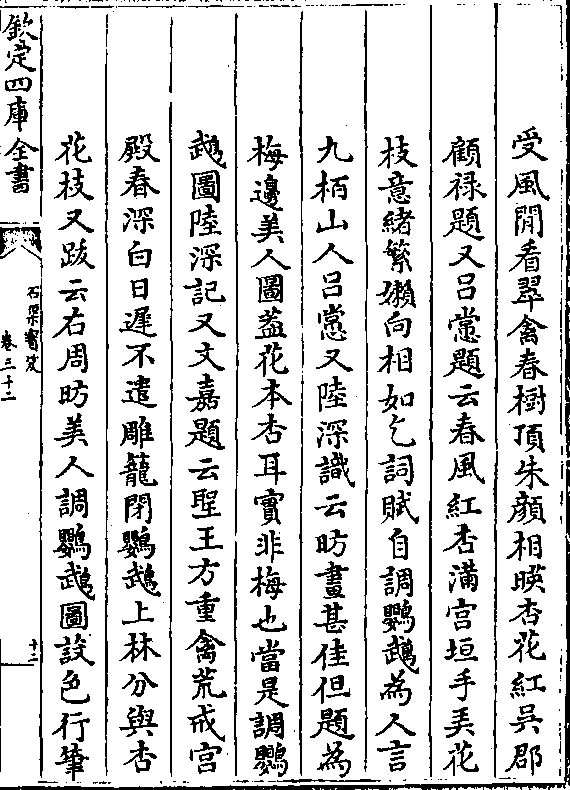 受風閒看翠禽春樹頂朱顔相暎杏花紅吳郡
顧禄題又吕鴬題云春風紅杏滿宫垣手弄花
枝意緒繁嬾向相如乞詞賦自調鸚鵡為人言
九栢山人吕㦂又陸深識云昉畫甚佳但題為
梅邊美人圖葢花本杏耳實非梅也當是調鸚
鵡圖陸深記又文嘉題云聖王方重禽荒戒宫
殿春深白日遲不遣雕籠閉鸚鵡上林分與杏
花枝又跋云右周昉美人調鸚鵡圖設色行筆
欽定四庫全書
石渠寶笈
卷三十二
十二